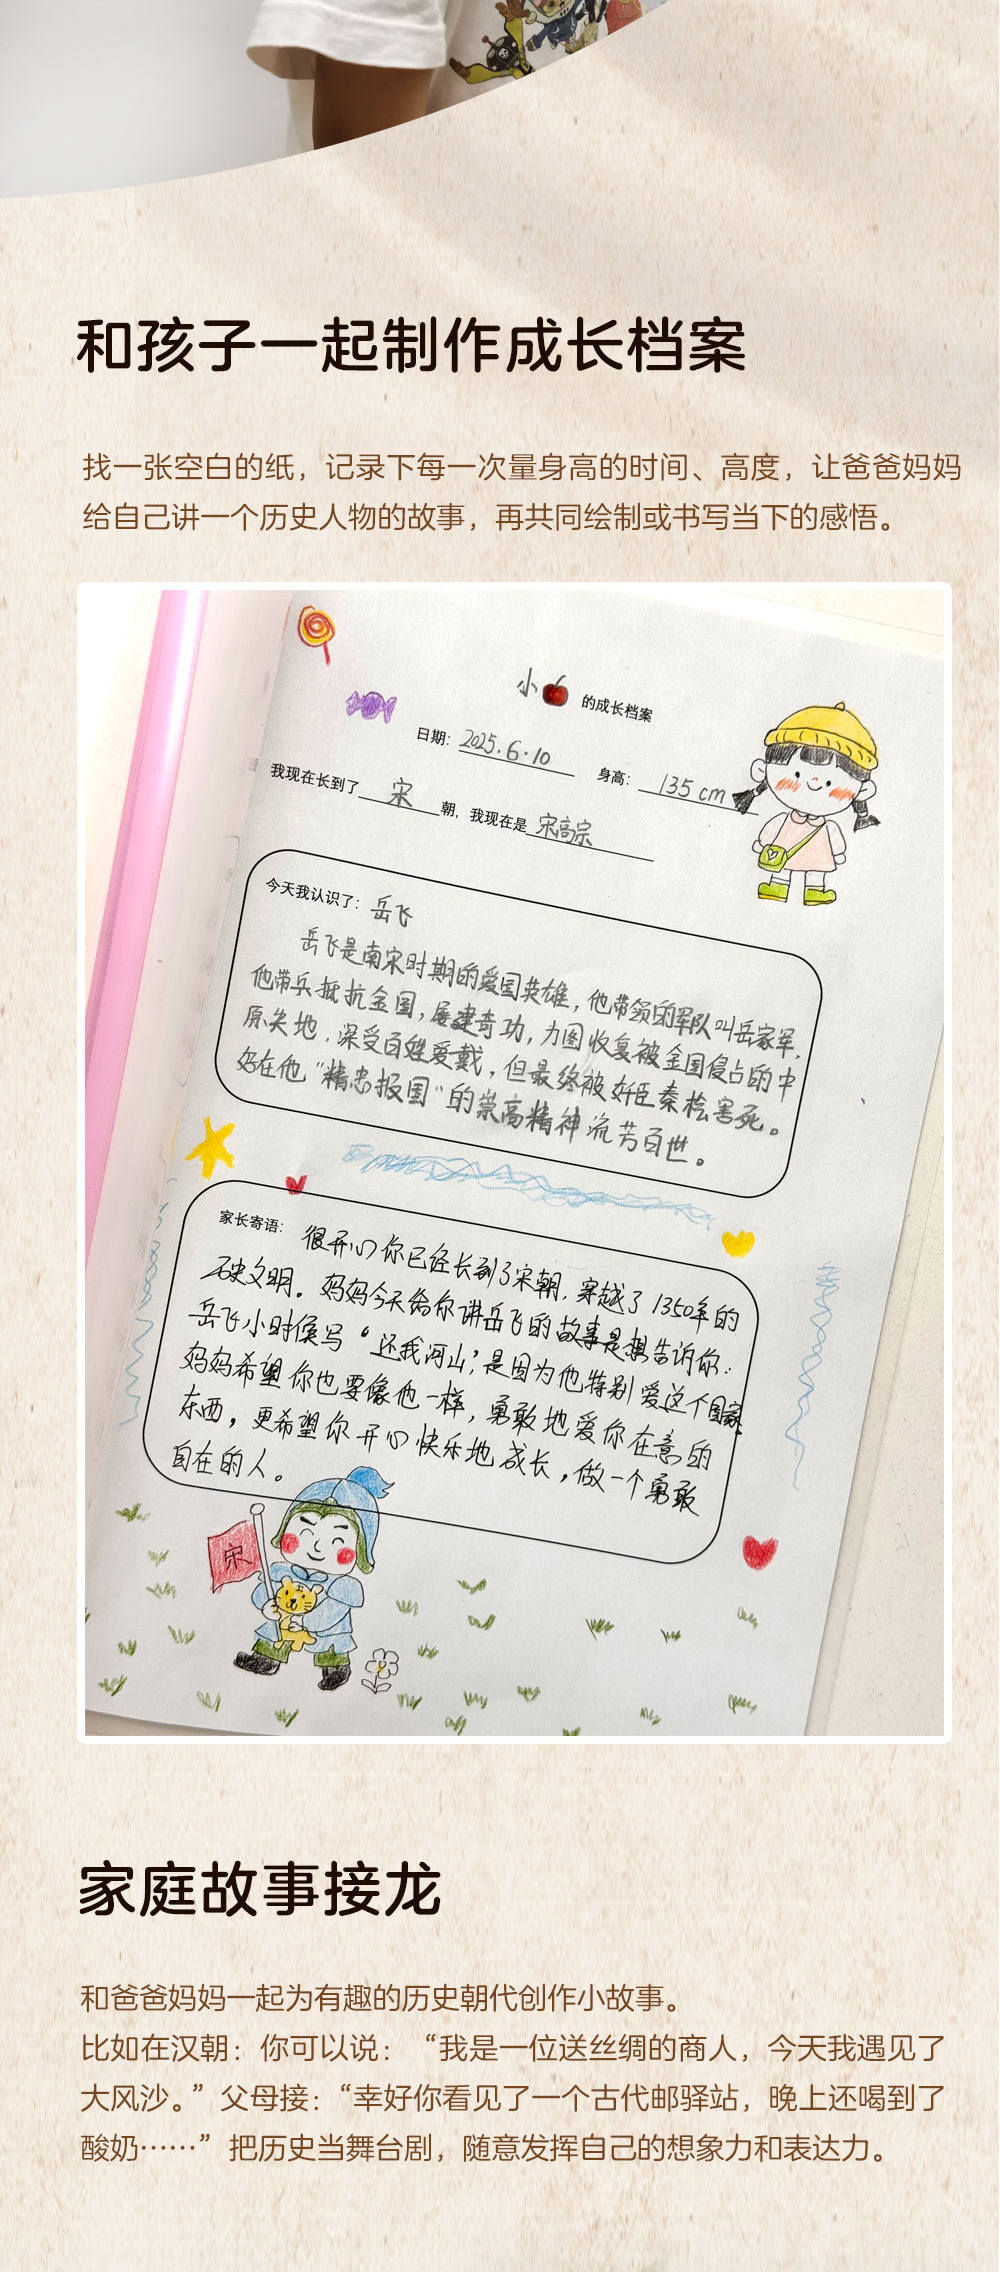 和孩子一起制作成长档案
找一张空白的纸，记录下每一次量身高的时间、高度，让爸爸妈妈
给自己讲一个历史人物的故事，再共同绘制或书写当下的感悟。
小 的成长档案
日期：2025.6.10 身高：135 cm
我现在长到了宋朝，我现在是宋高宗
今天我认识了：岳飞
岳飞是南宋时期的爱国英雄，他带领的军队叫岳家军，
他带兵抵抗金国，屡建奇功，力图收复被金国侵占的中
原失地，深受百姓爱戴，但最终被奸臣秦桧害死。
好在他“精忠报国”的崇高精神流芳百世。
家长寄语：很开心你已经长到了宋朝，穿越了1350年的
历史文明。妈妈今天给你讲岳飞的故事是想告诉你：
岳飞小时候写“还我河山”，是因为他特别爱这个国家。
妈妈希望你也要像他一样，勇敢地爱你在意的
东西，更希望你开心快乐地成长，做一个勇敢
自在的人。
宋
家庭故事接龙
和爸爸妈妈一起为有趣的历史朝代创作小故事。
比如在汉朝：你可以说：“我是一位送丝绸的商人，今天我遇见了
大风沙。”父母接：“幸好你看见了一个古代邮驿站，晚上还喝到了
酸奶……”把历史当舞台剧，随意发挥自己的想象力和表达力。